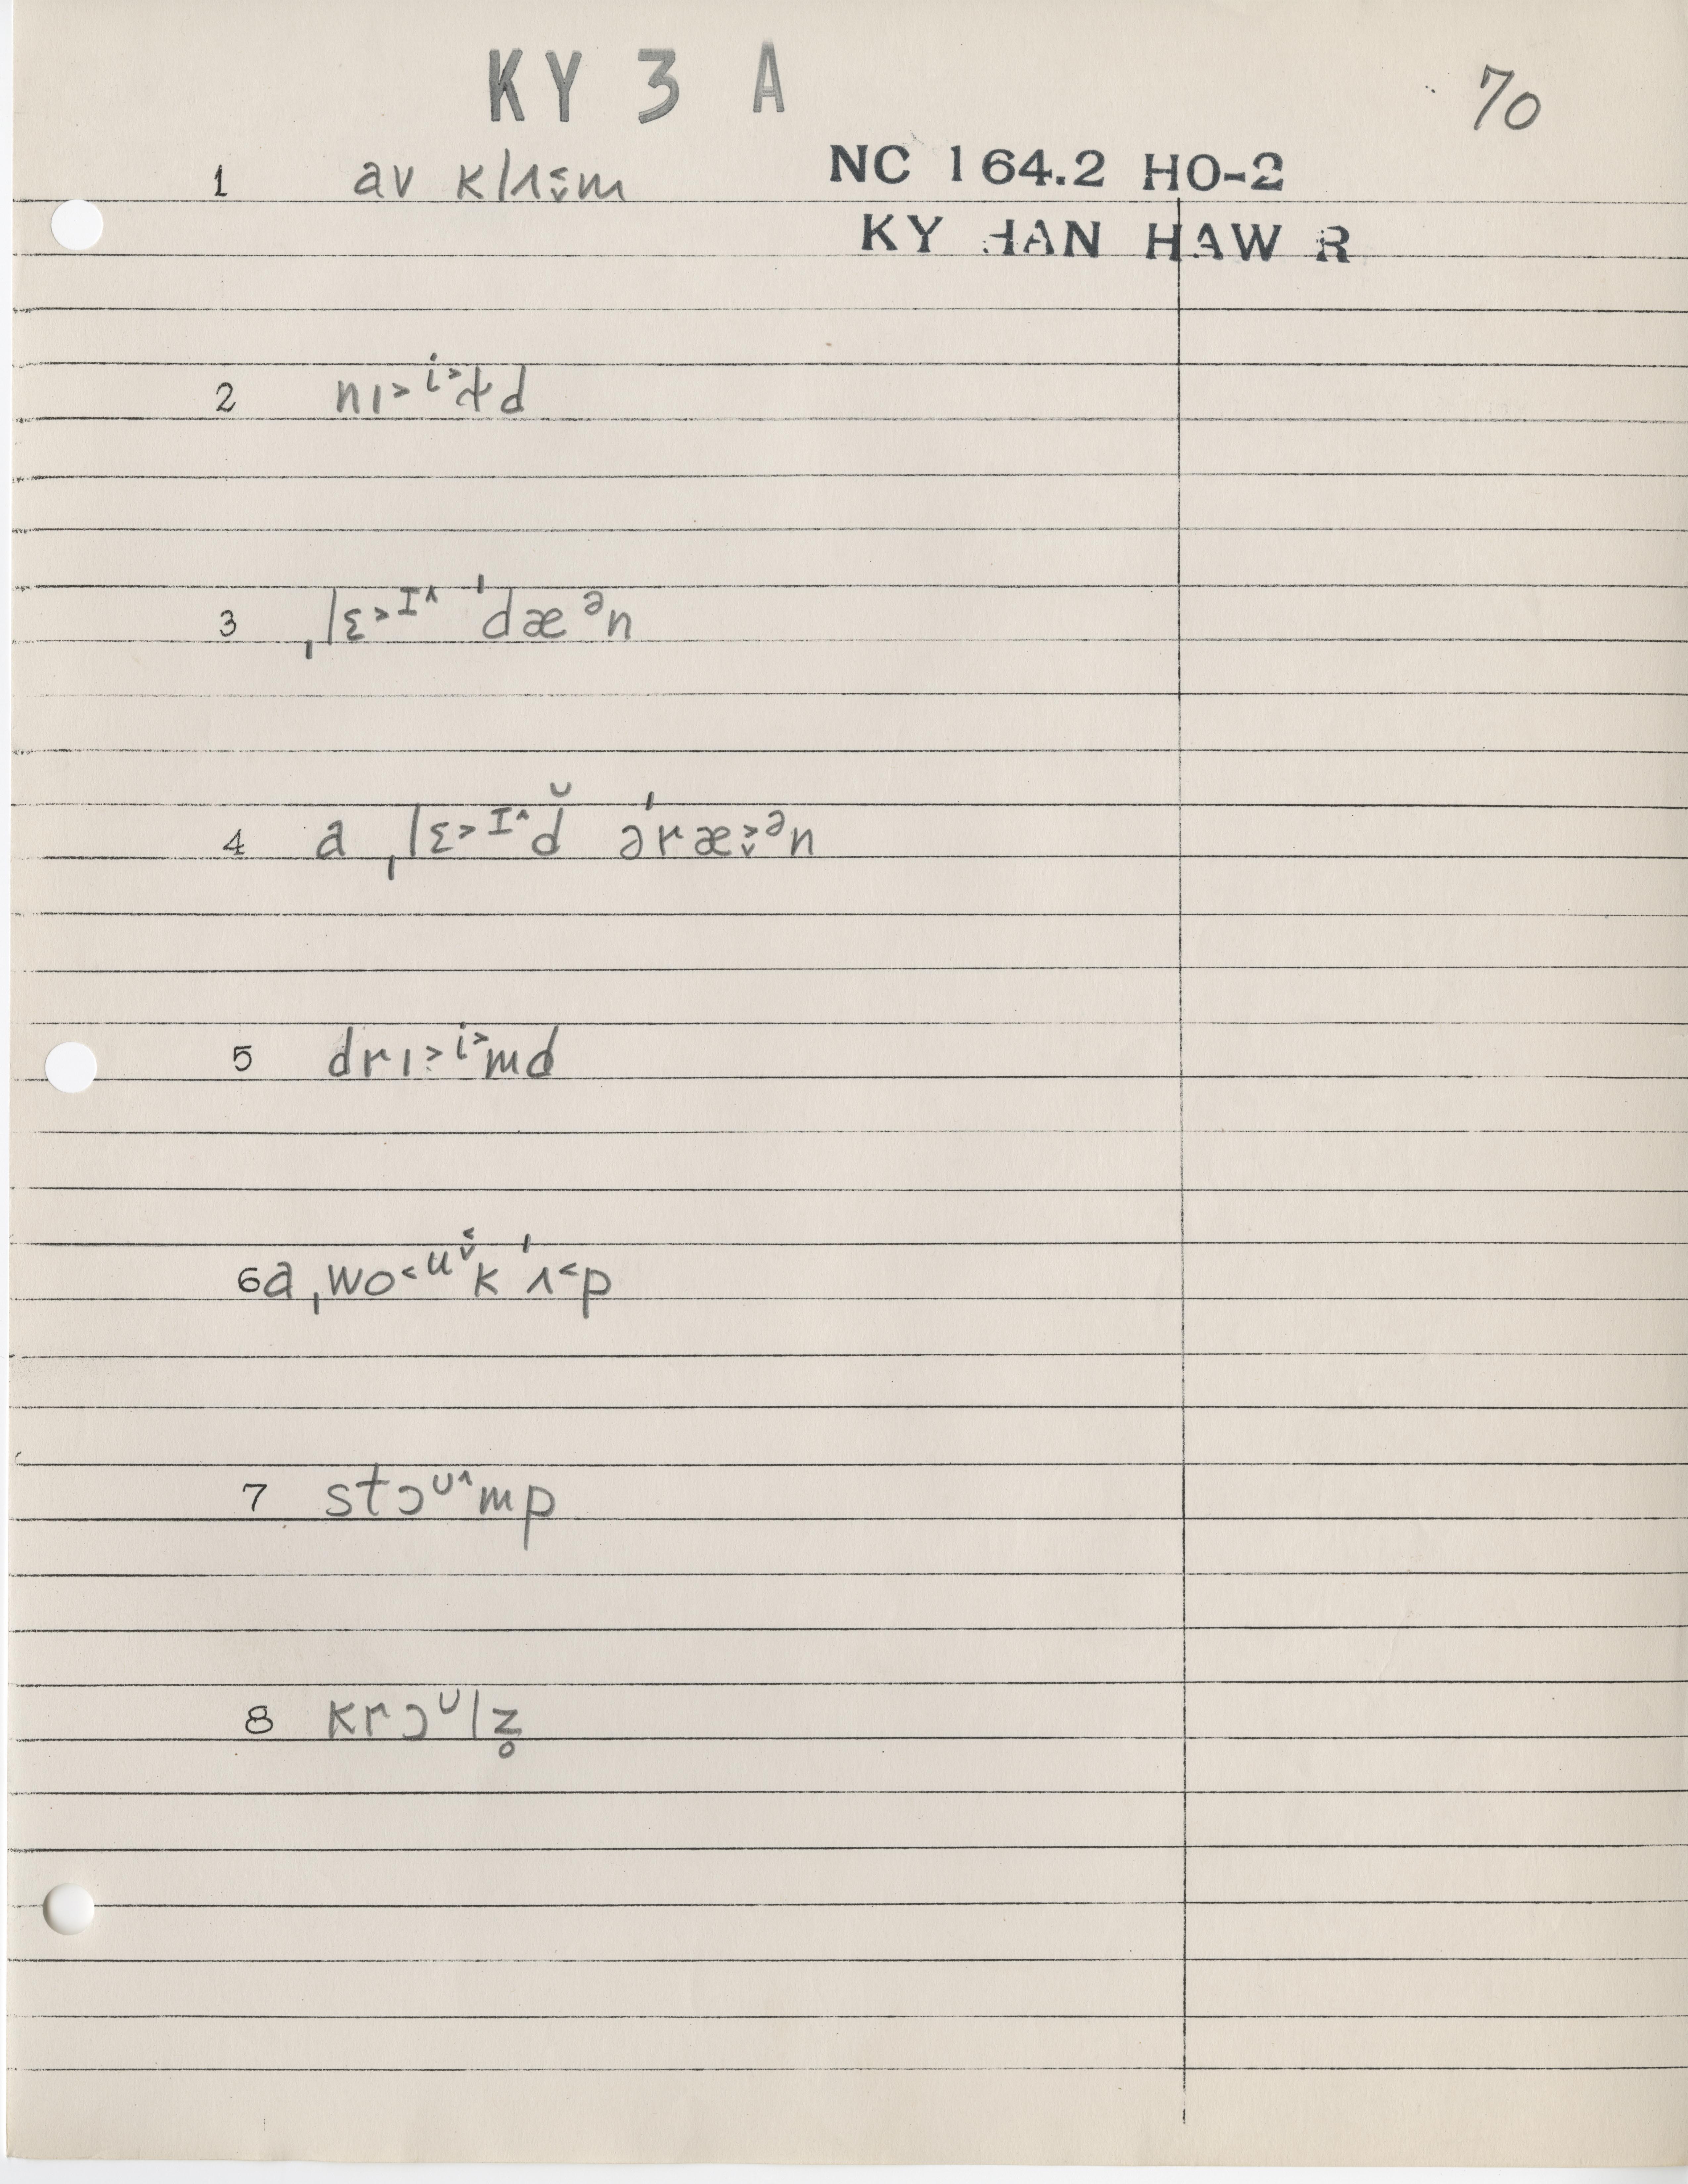 KY 3 A
70
NC 164.2 HO-2
KY HAN HAW R
1 av klʌ˂˯m
2 nɪ˃ⁱ˃ɫd
3 ˌlɛ˃ᴵ˄ ˈdæᵊn
4 a ˌlɛ˃ᴵ˄d̆ əˈræ˃˯ᵊn
5 drɪ˃ⁱ˃md
6 a ˌwo˂ᵘ˂˯k ˈʌ˂p
7 stɔᶸ˄mp
8 krɔᶸlz̥